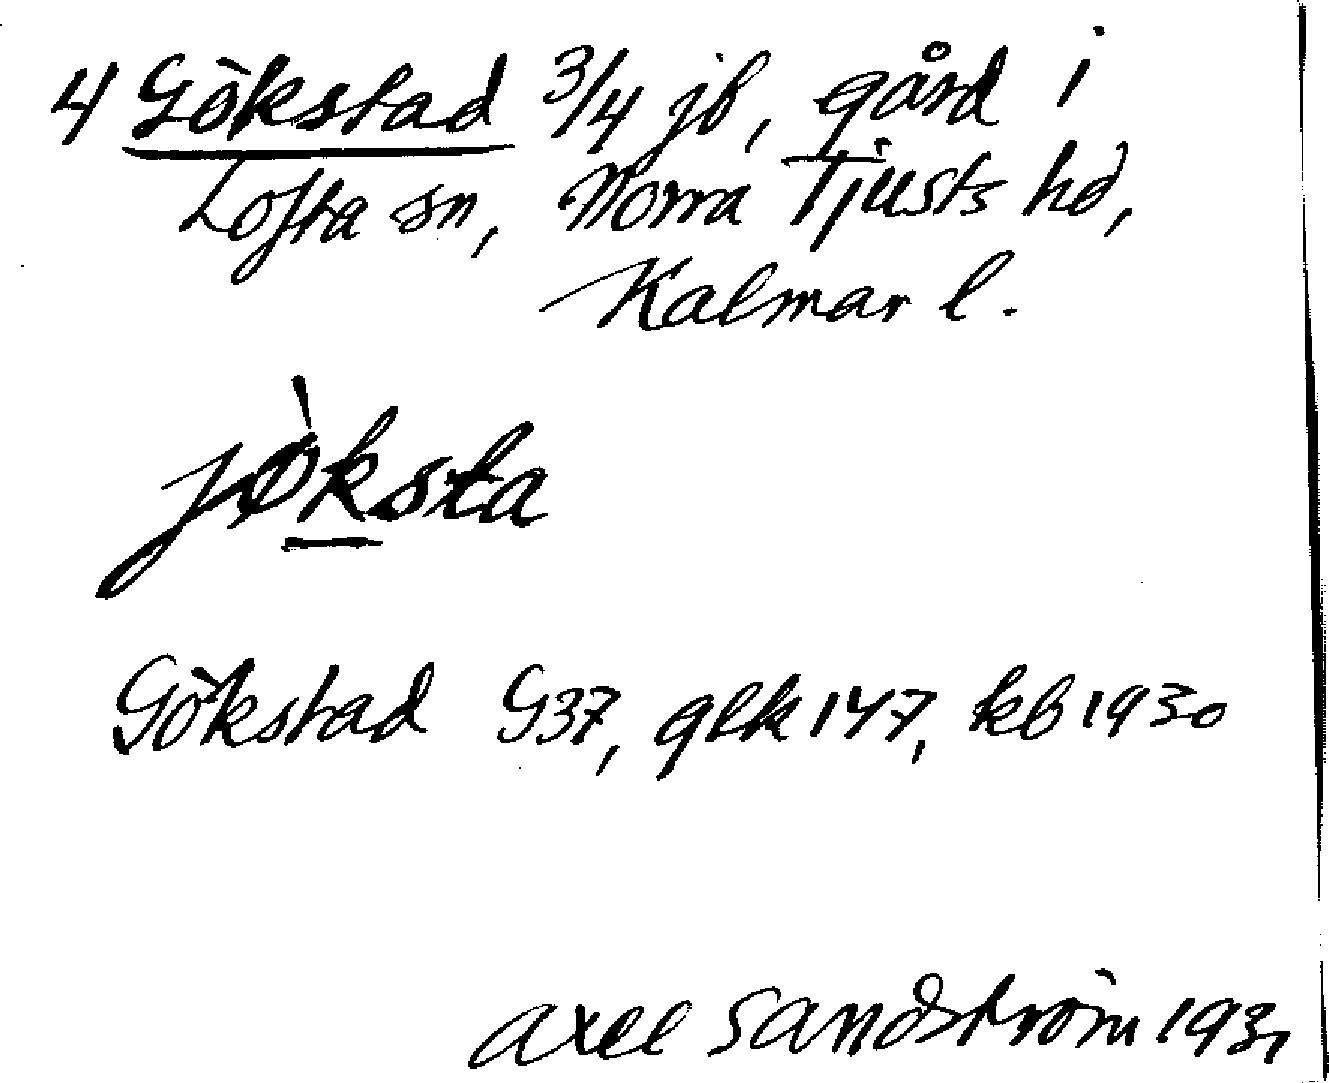 4 Gökstad 3/4 jb, gård i
Lofta sn, Norra Tjusts hd,
Kalmar l.
jö̀ksta
Gökstad G37, glk 147, kb 1930
Axel Sandström 1931